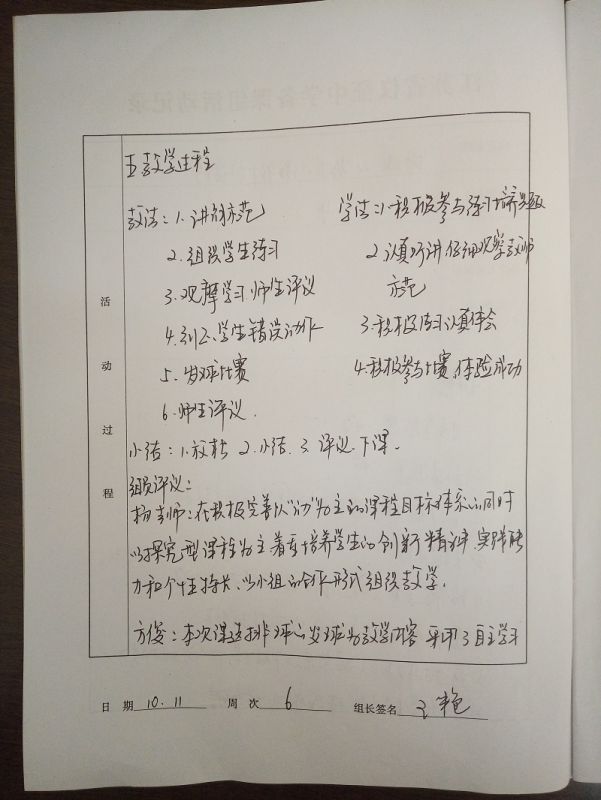 五教学过程
教法：1.讲解示范
学法：1.积极参与练习培养兴趣
2.组织学生练习
2.认真听讲仔细观察教师
3.观摩学习师生评议
示范
4.纠正学生错误动作
3.积极练习认真体会
5.发球比赛
4.积极参与比赛,体验成功
6.师生评议.
小结：1.放松 2.小结. 3.评议.下课.
组员评议：
老师：在积极完善以“动”为主的课程目标体系的同时
以探究型课程为主着重培养学生的创新精神.实践能
力和个性特长.以小组的合作形式组织教学.
方俊：本次课选择排球的发球为教学内容 采用了自主学习
活
动
过
程
日 期 10.11 周 次 6 组长签名 王艳